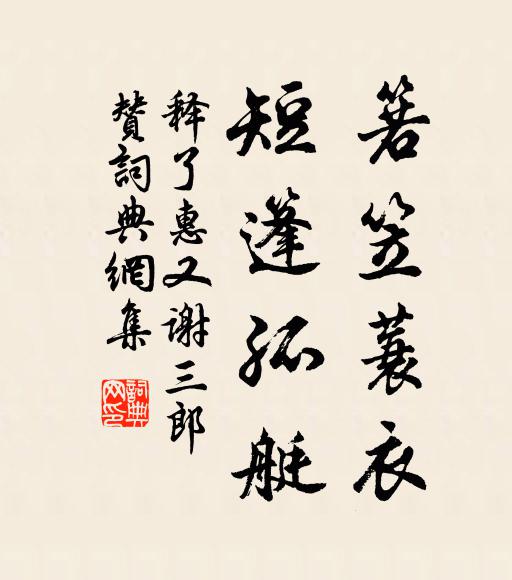 箬笠蓑衣
短篷孤艇
释了惠又谢三郎
赞词典網集
詞典网印